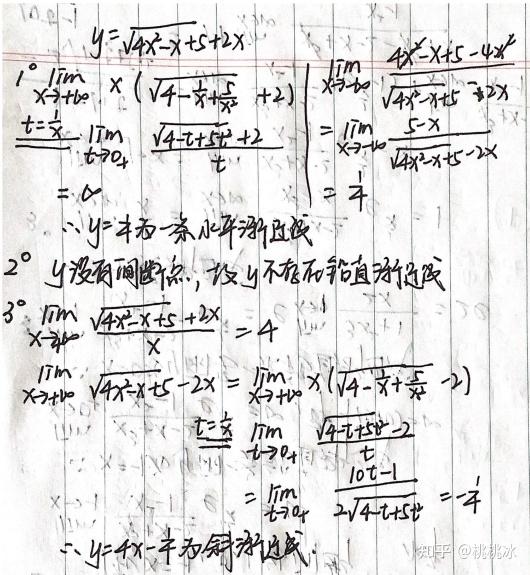 y=√(4x²-x+5)+2x
1° lim x→+∞ x(√(4-1/x+5/x²)+2)
t=1/x lim t→0+ (√(4-t+5t²)+2)/t
=∞
lim x→-∞ (4x²-x+5-4x²)/(√(4x²-x+5)-2x)
=lim x→-∞ (5-x)/(√(4x²-x+5)-2x)
=1/4
∴y=1/4为一条水平渐近线
2° y没有间断点,故y不存在铅直渐近线
3° lim x→+∞ (√(4x²-x+5)+2x)/x =4
lim x→+∞ √(4x²-x+5)-2x=lim x→+∞ x(√(4-1/x+5/x²)-2)
t=1/x lim t→0+ (√(4-t+5t²)-2)/t
=lim t→0+ (10t-1)/(2√(4-t+5t²)) =-1/4
∴y=4x-1/4为斜渐近线.
知乎 @桃桃冰